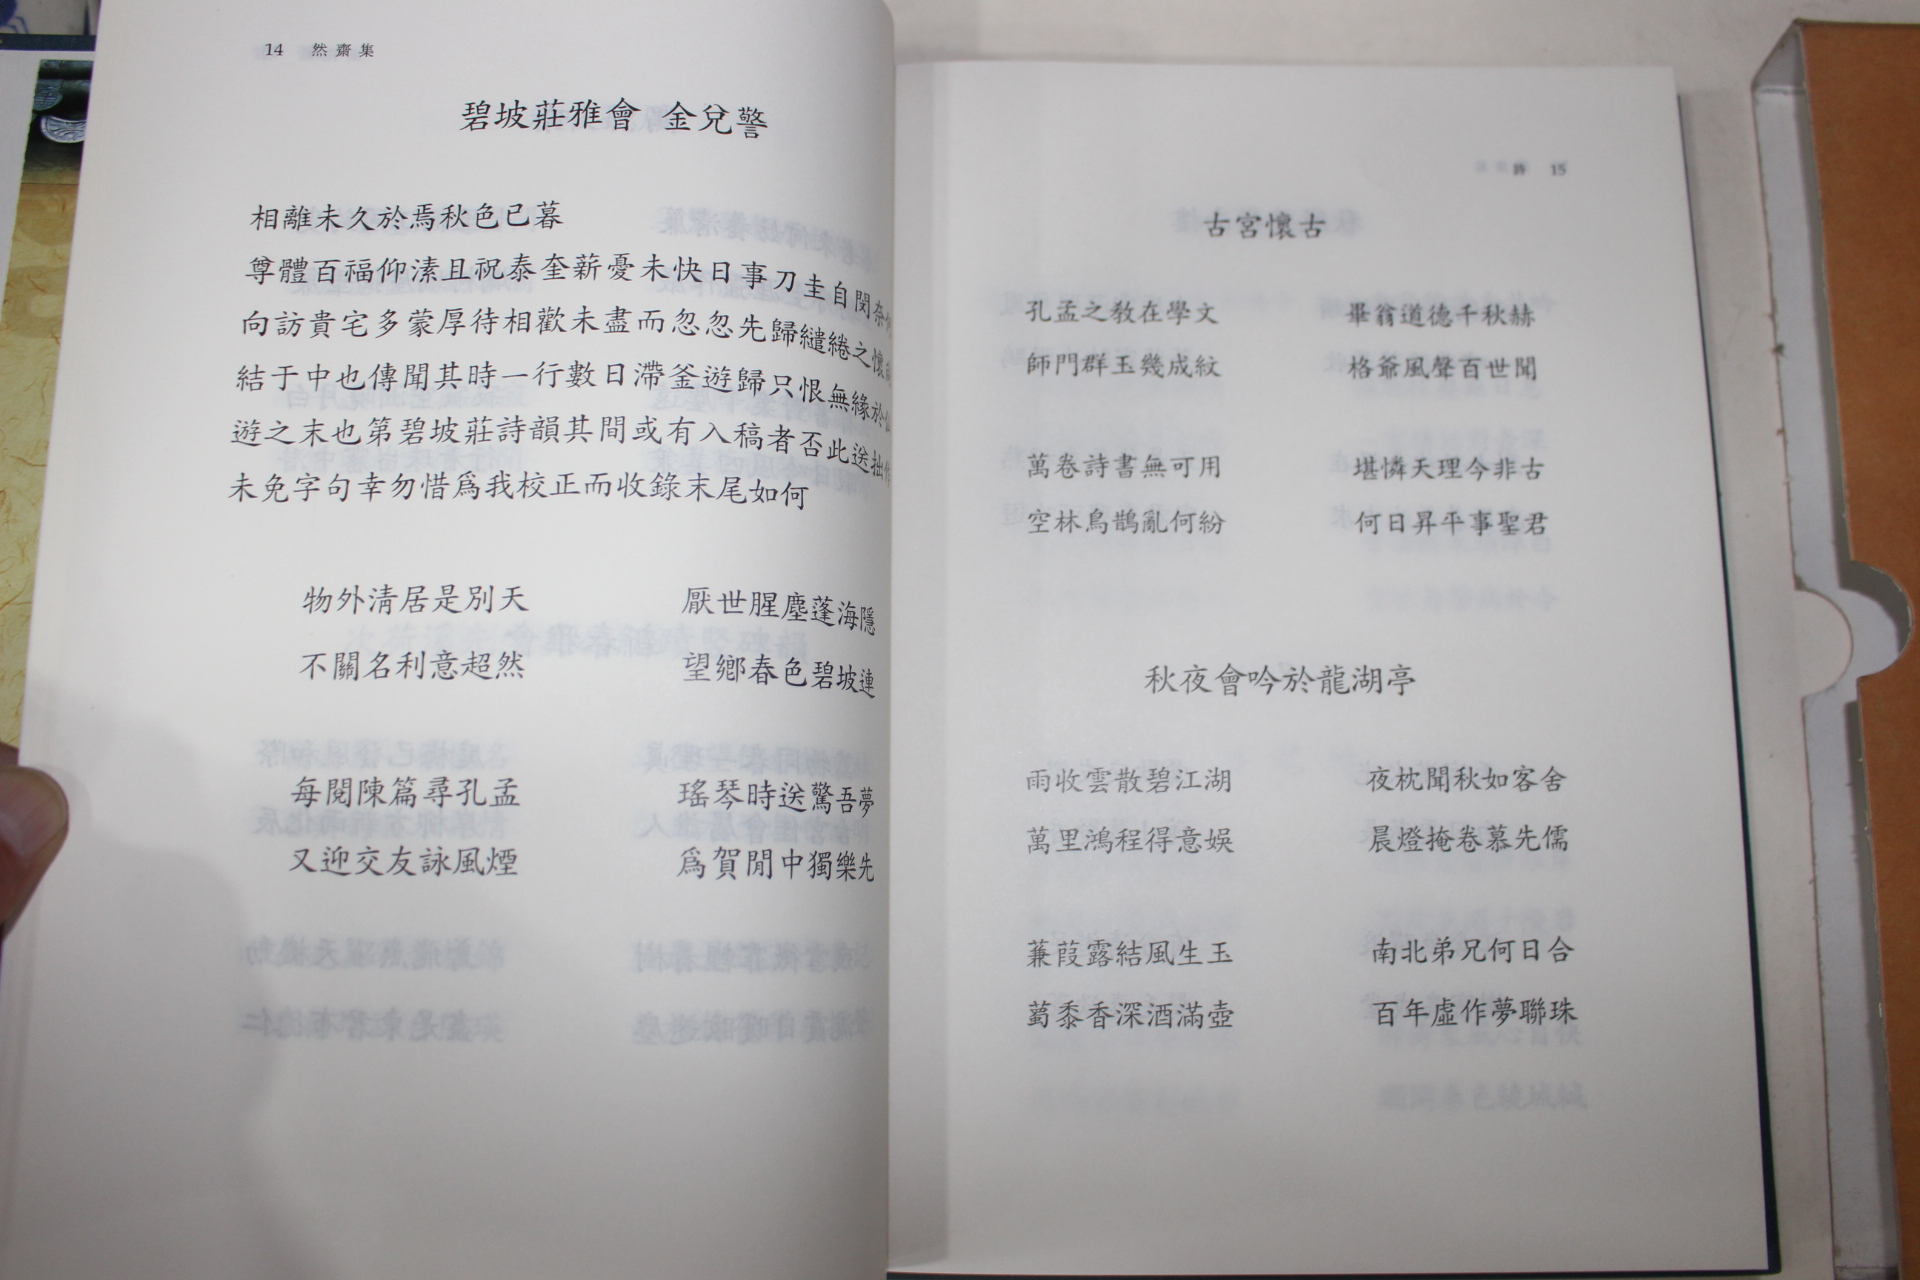 14 然齋集
碧坡莊雅會 金兌警
相離未久於焉秋色已暮
尊體百福仰溸且祝泰奎薪憂未快日事刀圭自閔奈
向訪貴宅多蒙厚待相歡未盡而忽忽先歸繾綣之懷
結于中也傳聞其時一行數日滯釜遊歸只恨無緣於
遊之末也第碧坡莊詩韻其間或有入稿者否此送拙作
未免字句幸勿惜爲我校正而收錄末尾如何
物外淸居是別天 厭世腥塵蓬海隱
不關名利意超然 望鄉春色碧坡連
每閱陳篇尋孔孟 瑤琴時送驚吾夢
又迎交友詠風煙 爲賀閒中獨樂先
詩 15
古宮懷古
孔孟之敎在學文 畢翁道德千秋赫
師門群玉幾成紋 格爺風聲百世聞
萬卷詩書無可用 堪憐天理今非古
空林烏鵲亂何紛 何日昇平事聖君
秋夜會吟於龍湖亭
雨收雲散碧江湖 夜枕聞秋如客舍
萬里鴻程得意娛 晨燈掩卷慕先儒
蒹葭露結風生玉 南北弟兄何日合
蔔黍香深酒滿壺 百年虛作夢聯珠